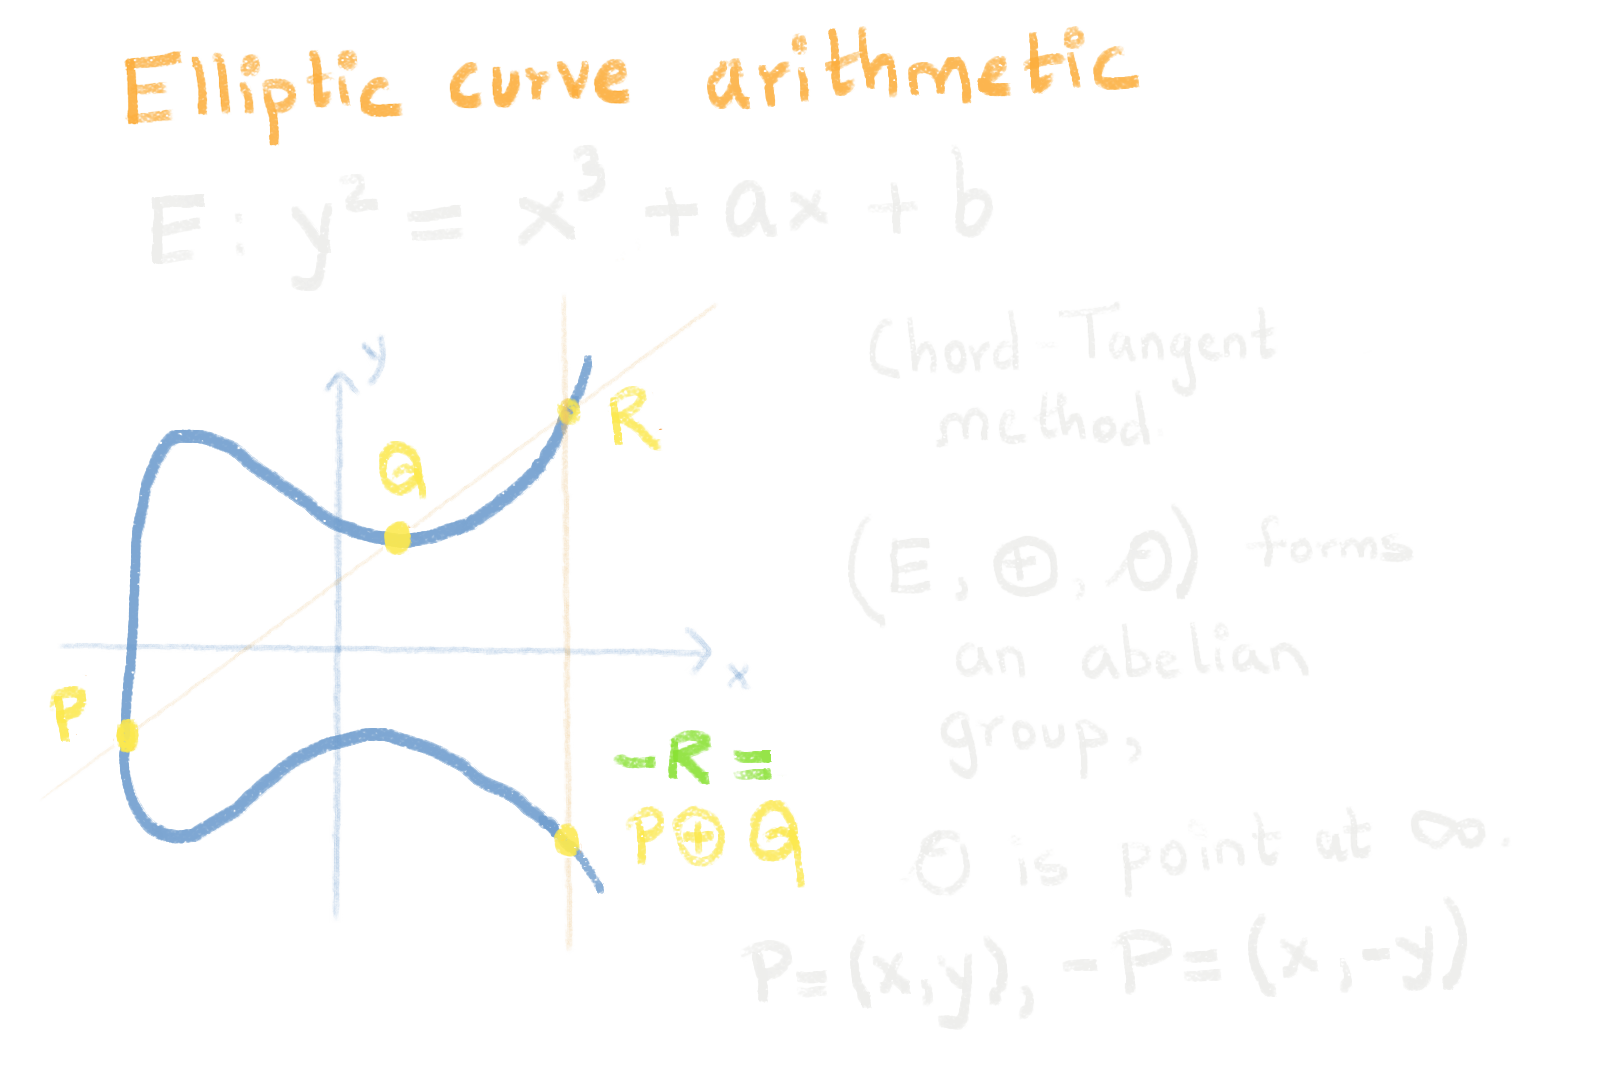 Elliptic curve arithmetic
E: y² = x³ + ax + b
Chord-Tangent
method
y
Q
R
(E, ⊕, O) forms
an abelian
group,
x
P
-R =
P ⊕ Q
O is point at ∞.
P = (x,y), -P = (x,-y)